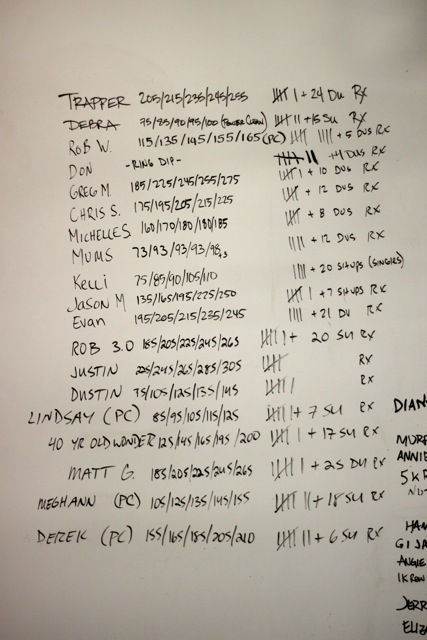 TRAPPER 205/215/235/245/255 卌 I + 24 DU RX
DEBRA 75/85/90/95/100 (POWER CLEAN) 卌 II + 15 SU RX
ROB W. 115/135/145/155/165 (PC) 卌 IIII + 5 DUS RX
DON -RING DIP- 卌 II +4 DUS RX
GREG M. 185/225/245/255/275 卌 I + 10 DUS RX
CHRIS S. 175/195/205/215/225 卌 + 12 DUS RX
MICHELLE S. 160/170/180/180/185 卌 + 8 DUS RX
MUMS 73/93/93/93/98 IIII + 12 DUS RX
Kelli 75/85/90/105/110 IIII + 20 SITUPS (SINGLES)
JASON M 135/165/195/225/250 卌 I + 7 SITUPS RX
Evan 195/205/215/235/245 IIII + 21 DU RX
ROB 3.0 185/205/225/245/265 卌 I + 20 SU RX
JUSTIN 225/245/265/285/305 卌 RX
DUSTIN 75/105/125/135/145 卌 I RX
LINDSAY (PC) 85/95/105/115/125 卌 I + 7 SU RX
40 YR OLD WONDER 125/145/165/195/200 卌 I + 17 SU RX
MATT G. 185/205/225/245/265 卌 I + 25 DU RX
MEGHANN (PC) 105/125/135/145/155 卌 II + 18 SU RX
DEREK (PC) 155/165/185/205/210 卌 II + 6 SU RX
DIAN
MURP
ANNIE
5K R
HAM
GI JA
ANGIE
1K ROW
JERR
ELIZ